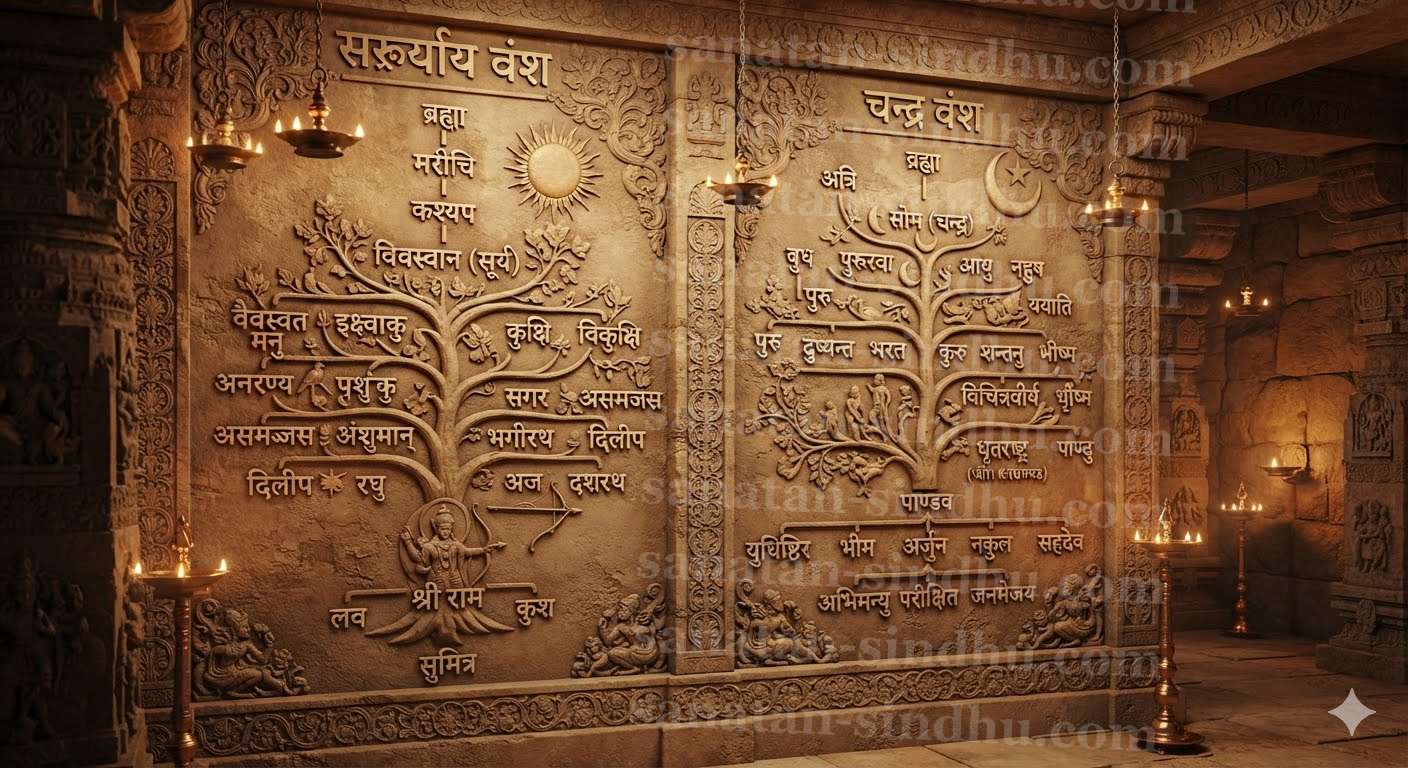 सरूर्याय वंश
ब्रह्मा
मरीचि
कश्यप
विवस्वान (सूर्य)
वैवस्वत मनु इक्ष्वाकु कुक्षि विकुक्षि
अनरण्य पृथुकु सगर असमजस
असमञ्जस अंशुमान् भगीरथ दिलीप
दिलीप रघु अज दशरथ
श्री राम
लव कुश
सुमित्र
चन्द्र वंश
ब्रह्मा
अत्रि
सोम (चन्द्र)
बुध पुरूरवा आयु नहुष
पुरु ययाति
पुरु दुष्यन्त भरत कुरु शन्तनु भीष्म
विचित्रवीर्य
धृतराष्ट्र पाण्डु
पाण्डव
युधिष्ठिर भीम अर्जुन नकुल सहदेव
अभिमन्यु परीक्षित जनमेजय
sanatan-sindhu.com
sanatan-sindhu.com
sanatan-sindhu.com
sanatan-sindhu.com
sanatan-sindhu.com
sanatan-sindhu.com
sanatan-sindhu.com
sanatan-sindhu.com
sanatan-sindhu.com